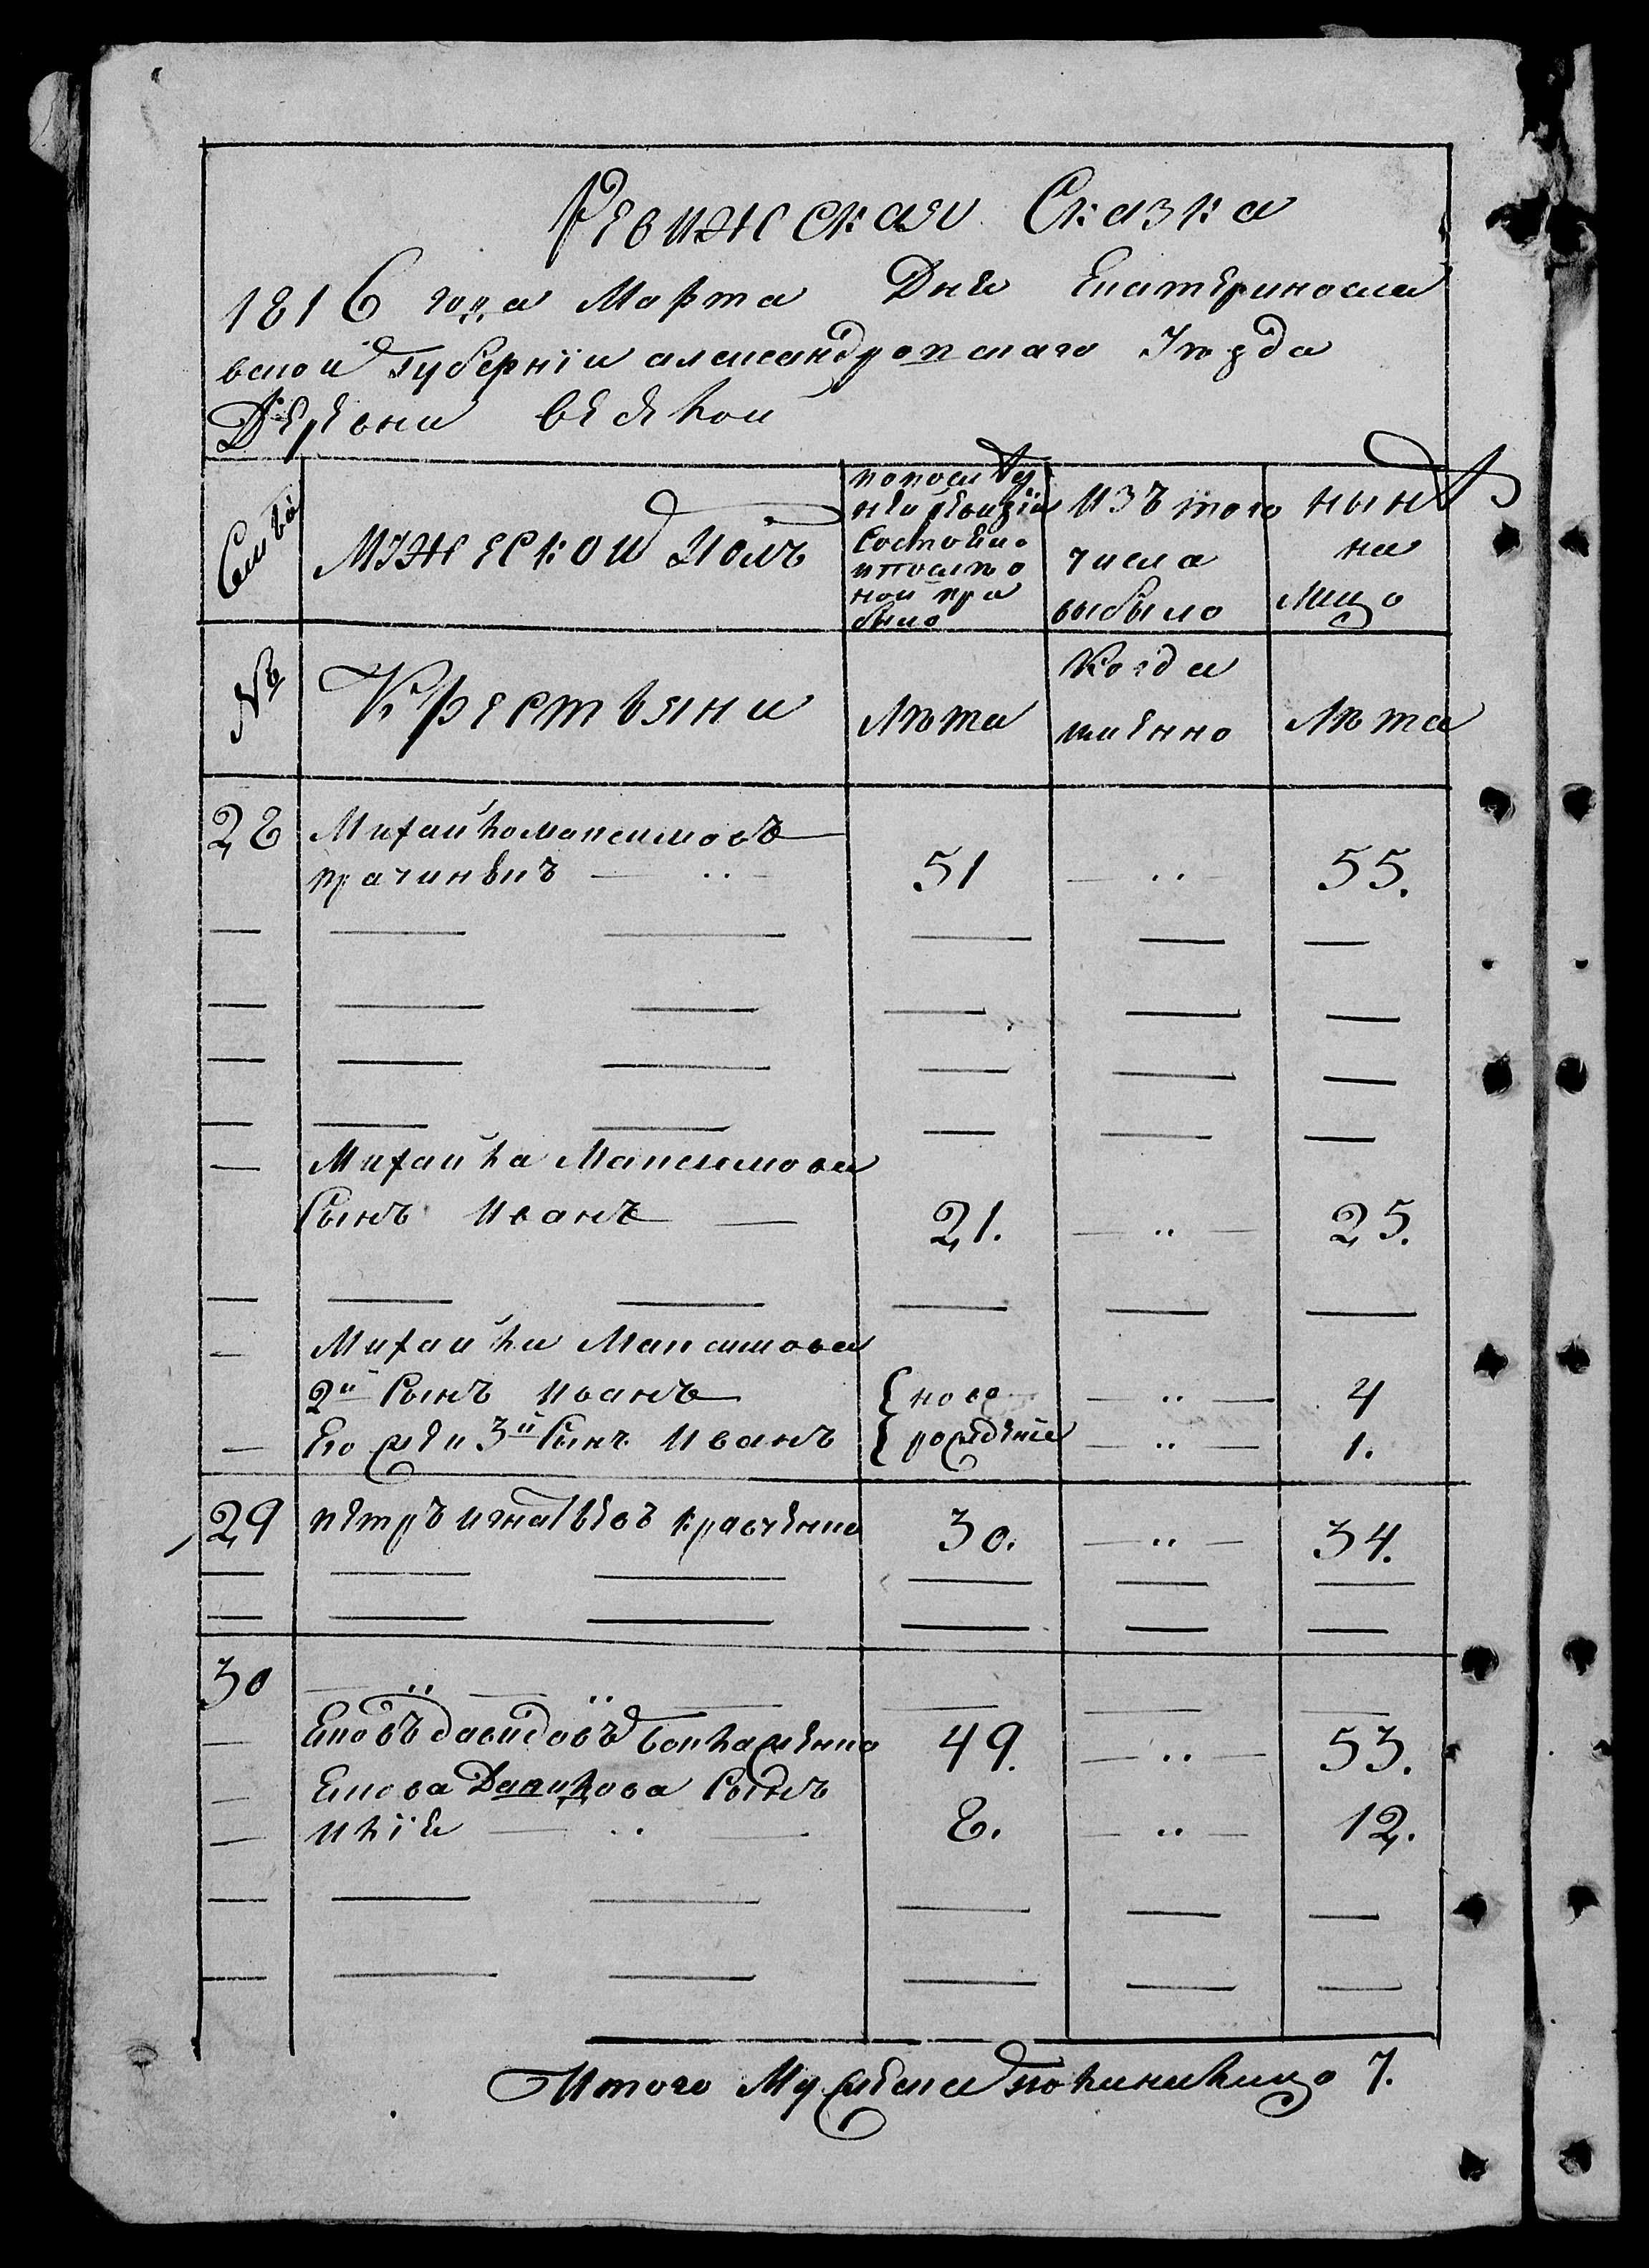 Ревижская Сказка
1816 года Марта Дня Екатериносла
вской Губернїи александровскаго Уезда
Деревни
Семьи
мужеской полъ
по послед
ней ревизїи
состояло
и после о
ной при
было
изъ того
числа
выбыло
ныне
на
лицо
№
Крестьяни
Лѣта
Когда
имянно
Лѣта
28 Михайло максимовъ
— .. — 51 — .. — 55.
Михайла Максимова
Сынъ Иванъ — 21. — .. — 25.
Михайла Максимова
2й Сынъ Иванъ ново — .. — 4
Его же и 3й Сынъ Иванъ рожденные — .. — 1.
29 петръ игнатьевъ кравченко 30. — .. — 34.
30
Яковъ давидовъ 49. — .. — 53.
Якова Сынъ
илїя — .. — 8. — .. — 12.
Итого Мужеска пола налицо 7.